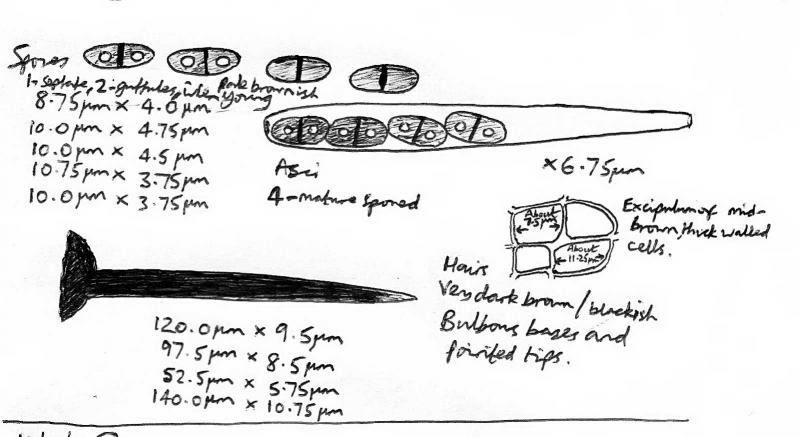 Spores
1-septate, 2-guttules, when young
Dark brownish
8.75µm × 4.0µm
10.0µm × 4.75µm
10.0µm × 4.5µm
10.75µm × 3.75µm
10.0µm × 3.75µm
Asci
4-mature spored
× 6.75µm
About
7.5µm
About
11.25µm
Excipulum of mid-
brown, thick walled
cells.
Hairs
Very dark brown / blackish
Bulbous bases and
pointed tips.
120.0µm × 9.5µm
97.5µm × 8.5µm
52.5µm × 5.75µm
140.0µm × 10.75µm